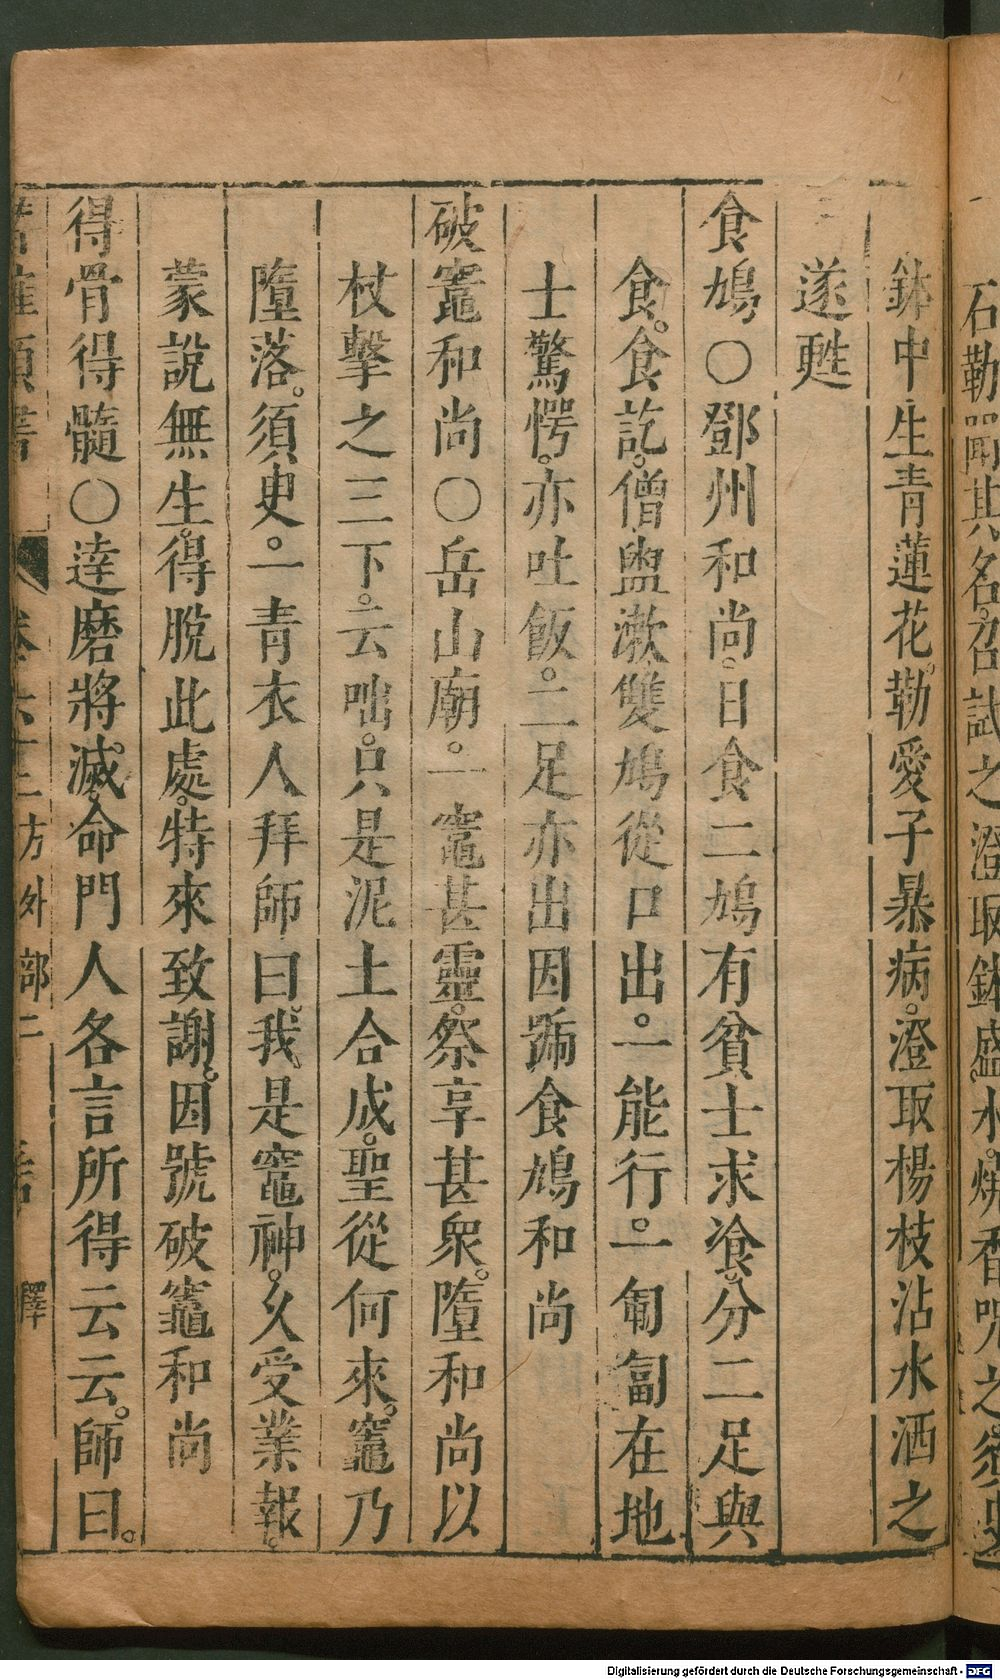 石勒聞其名。召試之澄取鉢盛水。燒香呪之須臾
鉢中生青蓮花。勒愛子暴病。澄取楊枝沾水洒之
遂甦
食鳩〇鄧州和尚。日食二鳩有貧士求飡。分二足與
食。食訖。僧盥漱。雙鳩從口出。一能行。一匍匐在地
士驚愕。亦吐飯。二足亦出因號食鳩和尚
破竈和尚〇岳山廟。一竈甚靈。祭享甚衆。墮和尚以
杖擊之三下。云咄。只是泥土合成。聖從何來。竈乃
墮落。須臾。一青衣人拜師曰。我是竈神。久受業報。
蒙說無生。得脫此處。特來致謝。因號破竈和尚
得骨得髓〇達磨將滅。命門人各言所得云云。師曰。
方外部二
釋
Digitalisierung gefördert durch die Deutsche Forschungsgemeinschaft - DFG